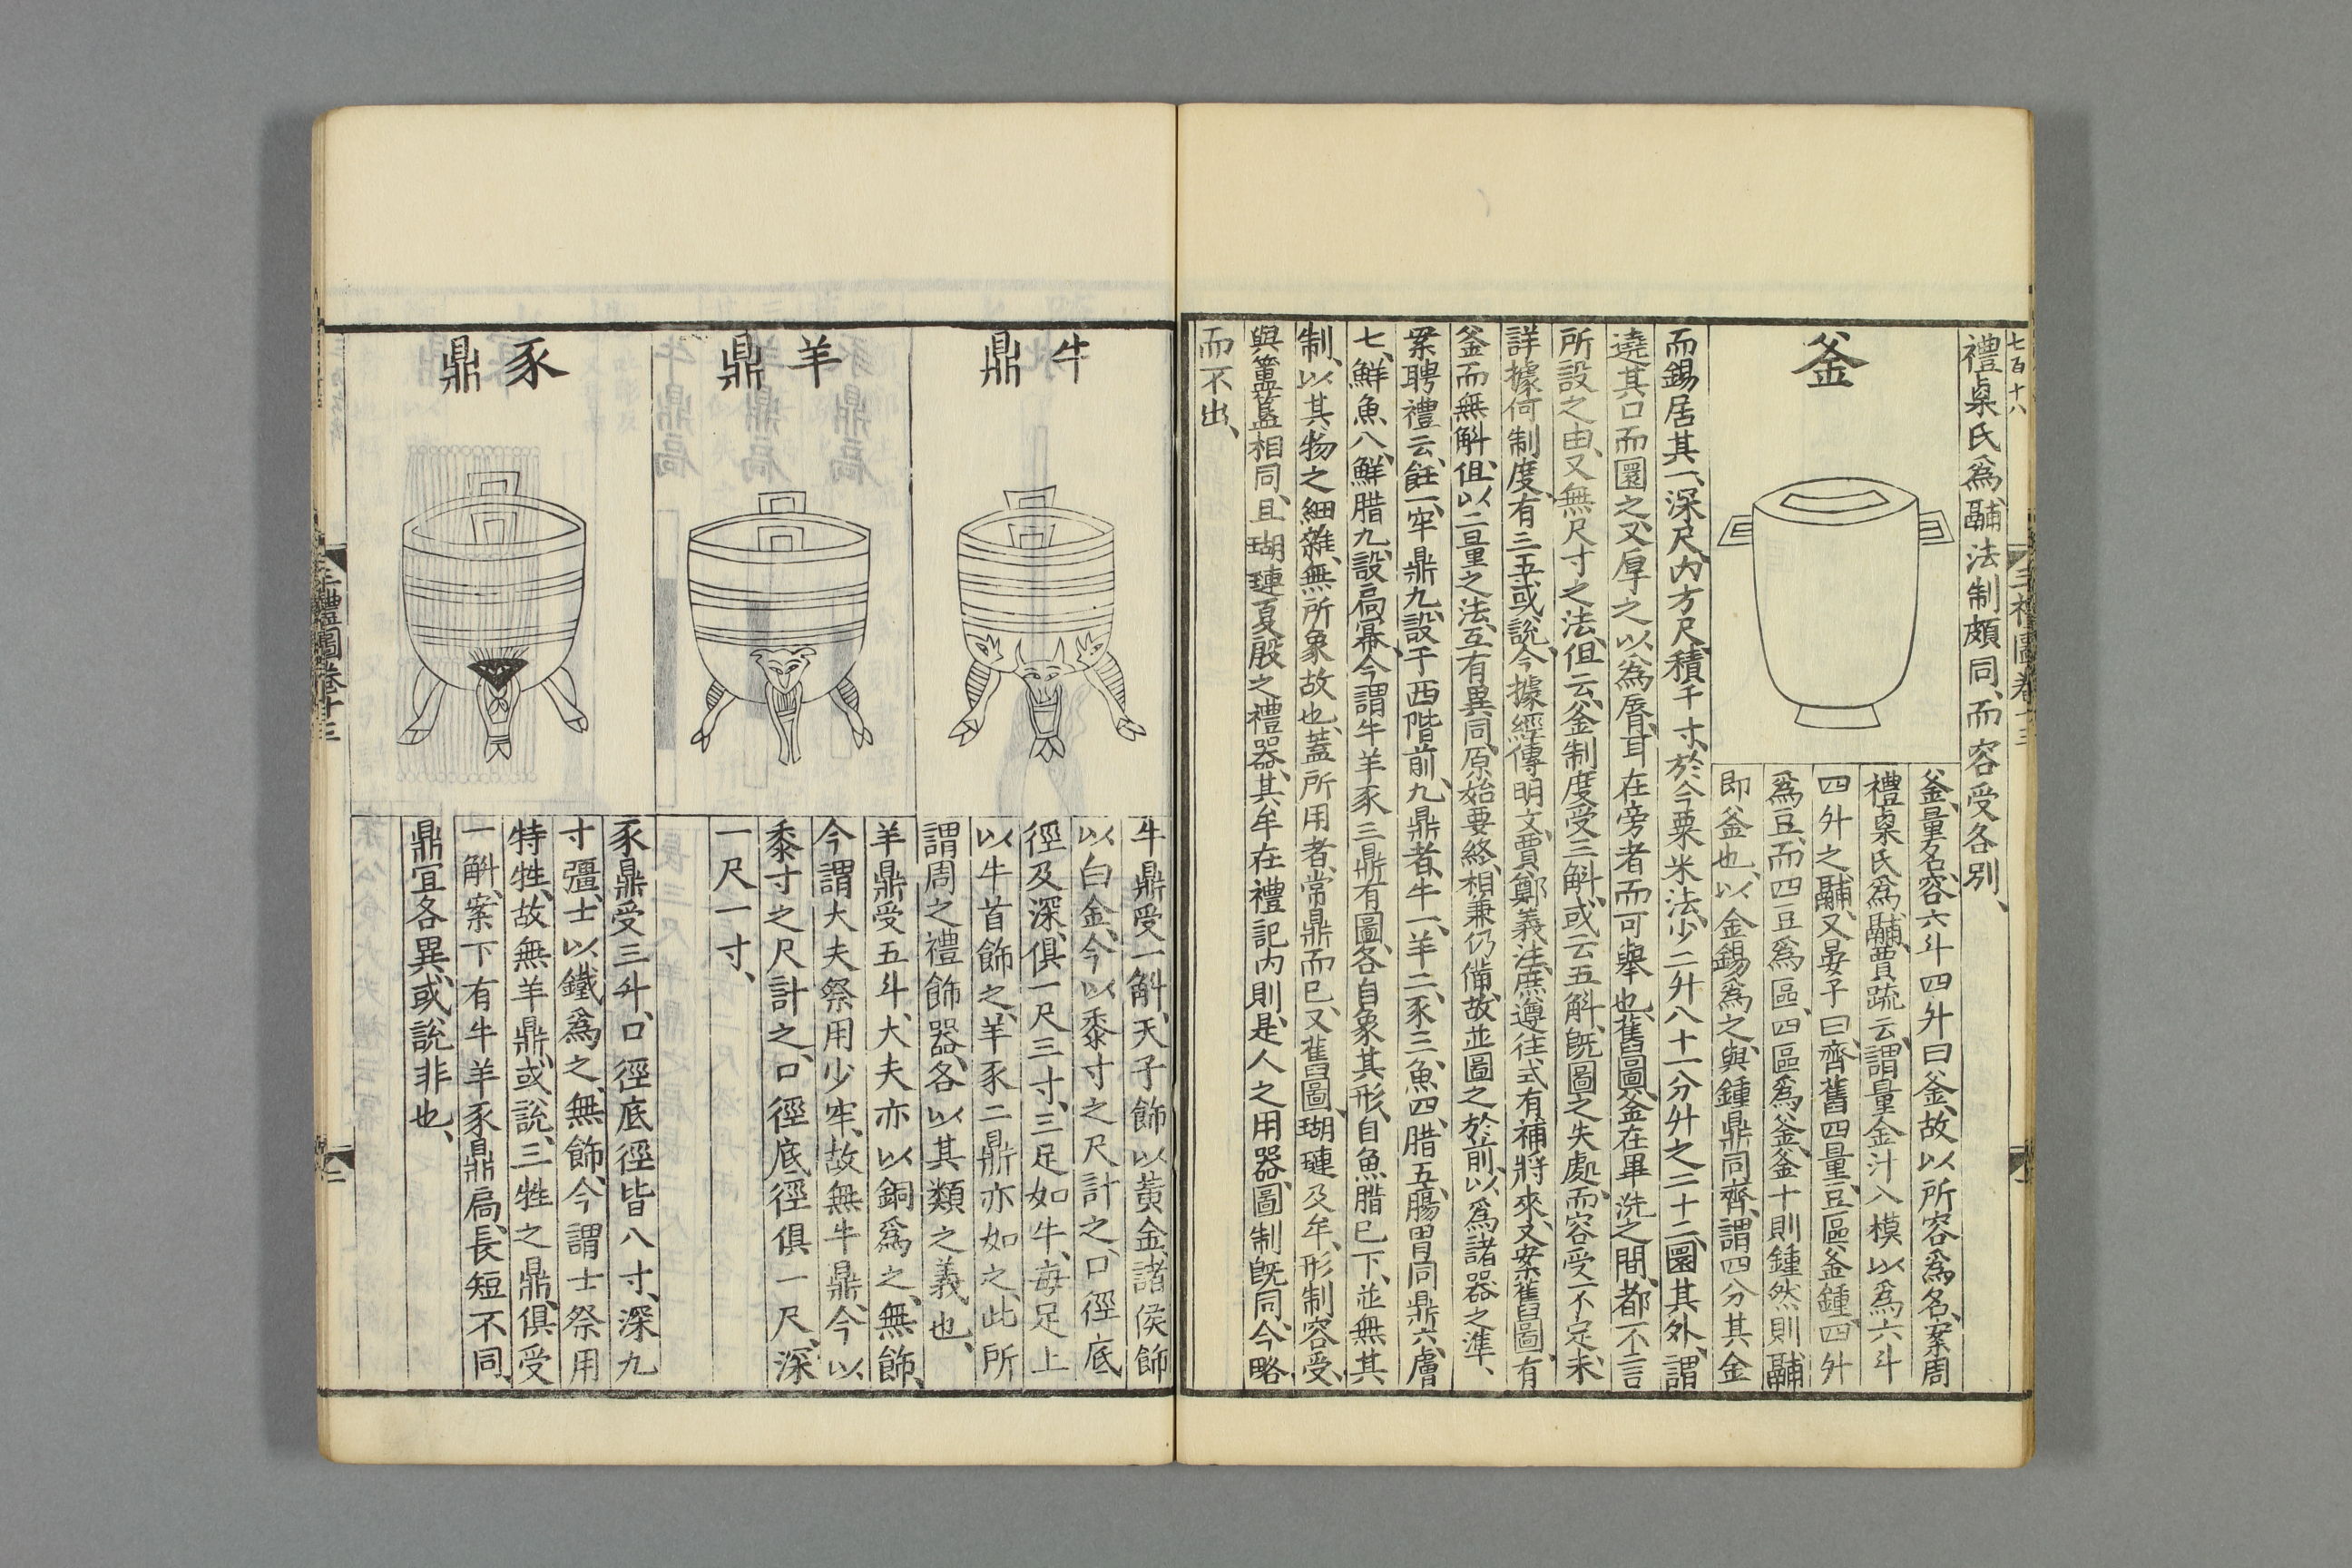 七百十八
三礼圖卷十三
禮㮚氏爲鬴法制頗同、而容受各別、
釜
釜、量名、容六斗四升曰釜、故以所容爲名、案周
禮㮚氏爲鬴、賈疏云、謂量金汁入模、以爲六斗
四升之鬴、又晏子曰、齊舊四量、豆區釜鍾、四升
爲豆、而四豆爲區、四區爲釜、釜十則鍾、然則鬴
即釜也、以金錫爲之、與鍾鼎同齊、謂四分其金
而錫居其一、深尺、内方尺、積千寸、於今粟米法、少二升八十一分升之二十二、圜其外、謂
遶其口而圜之、又厚之以爲脣、耳在旁者而可舉也、舊圖釜在畢洗之間、都不言
所設之由、又無尺寸之法、但云、釜制度受三斛、或云五斛、旣圖之失處、而容受不定、未
詳據何制度、有三五或說、今據經傳明文、賈鄭義注、庶遵往式、有補將來、又案舊圖、有
釜而無斛、但以二量之法、互有異同、原始要終、相兼仍備、故並圖之於前、以爲諸器之準、
案聘禮云、飪一牢、鼎九、設于西階前、九鼎者、牛一、羊二、豕三、魚四、腊五、腸胃同鼎六、膚
七、鮮魚八、鮮腊九、設扃冪、今謂牛羊豕三鼎有圖、各自象其形、自魚腊已下、並無其
制、以其物之細雜、無所象故也、蓋所用者、常鼎而已、又舊圖、瑚璉及牟、形制容受、
與簠簋相同、且瑚璉夏殷之禮器、其牟在禮記内則、是人之用器、圖制旣同、今略
而不出、
牛鼎
牛鼎受一斛、天子飾以黃金、諸侯飾
以白金、今以黍寸之尺計之、口徑底
徑及深、俱一尺三寸、三足如牛、每足上
以牛首飾之、羊豕二鼎亦如之、此所
謂周之禮飾器、各以其類之義也、
羊鼎
羊鼎受五斗、大夫亦以銅爲之、無飾、
今謂大夫祭用少牢、故無牛鼎、今以
黍寸之尺計之、口徑底徑俱一尺、深
一尺一寸、
豕鼎
豕鼎受三斗、口徑底徑皆八寸、深九
寸彊、士以鐵爲之、無飾、今謂士祭用
特牲、故無羊鼎、或說、三牲之鼎、俱受
一斛、案下有牛羊豕鼎扃、長短不同、
鼎宜各異、或說非也、
三禮圖卷十三
二